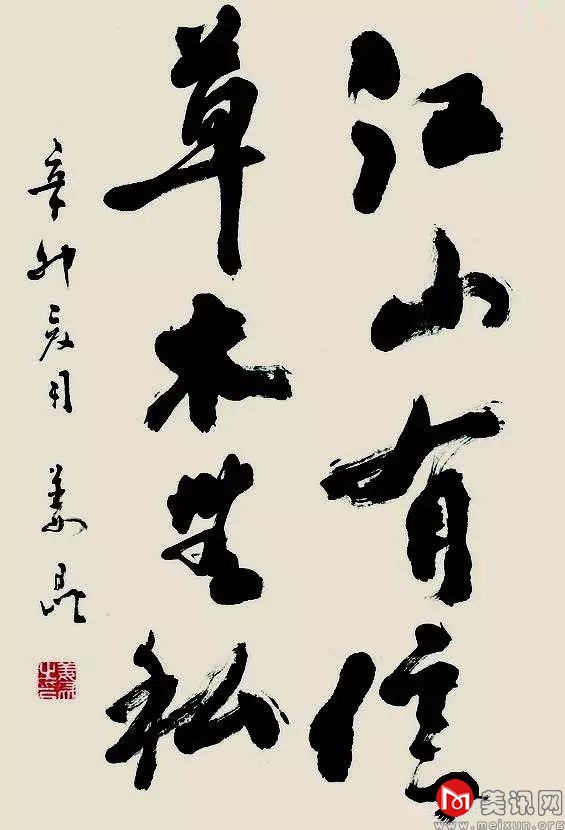 江山有信
草木無私
辛卯亥月 姜昆
美讯网
www.meixun.org